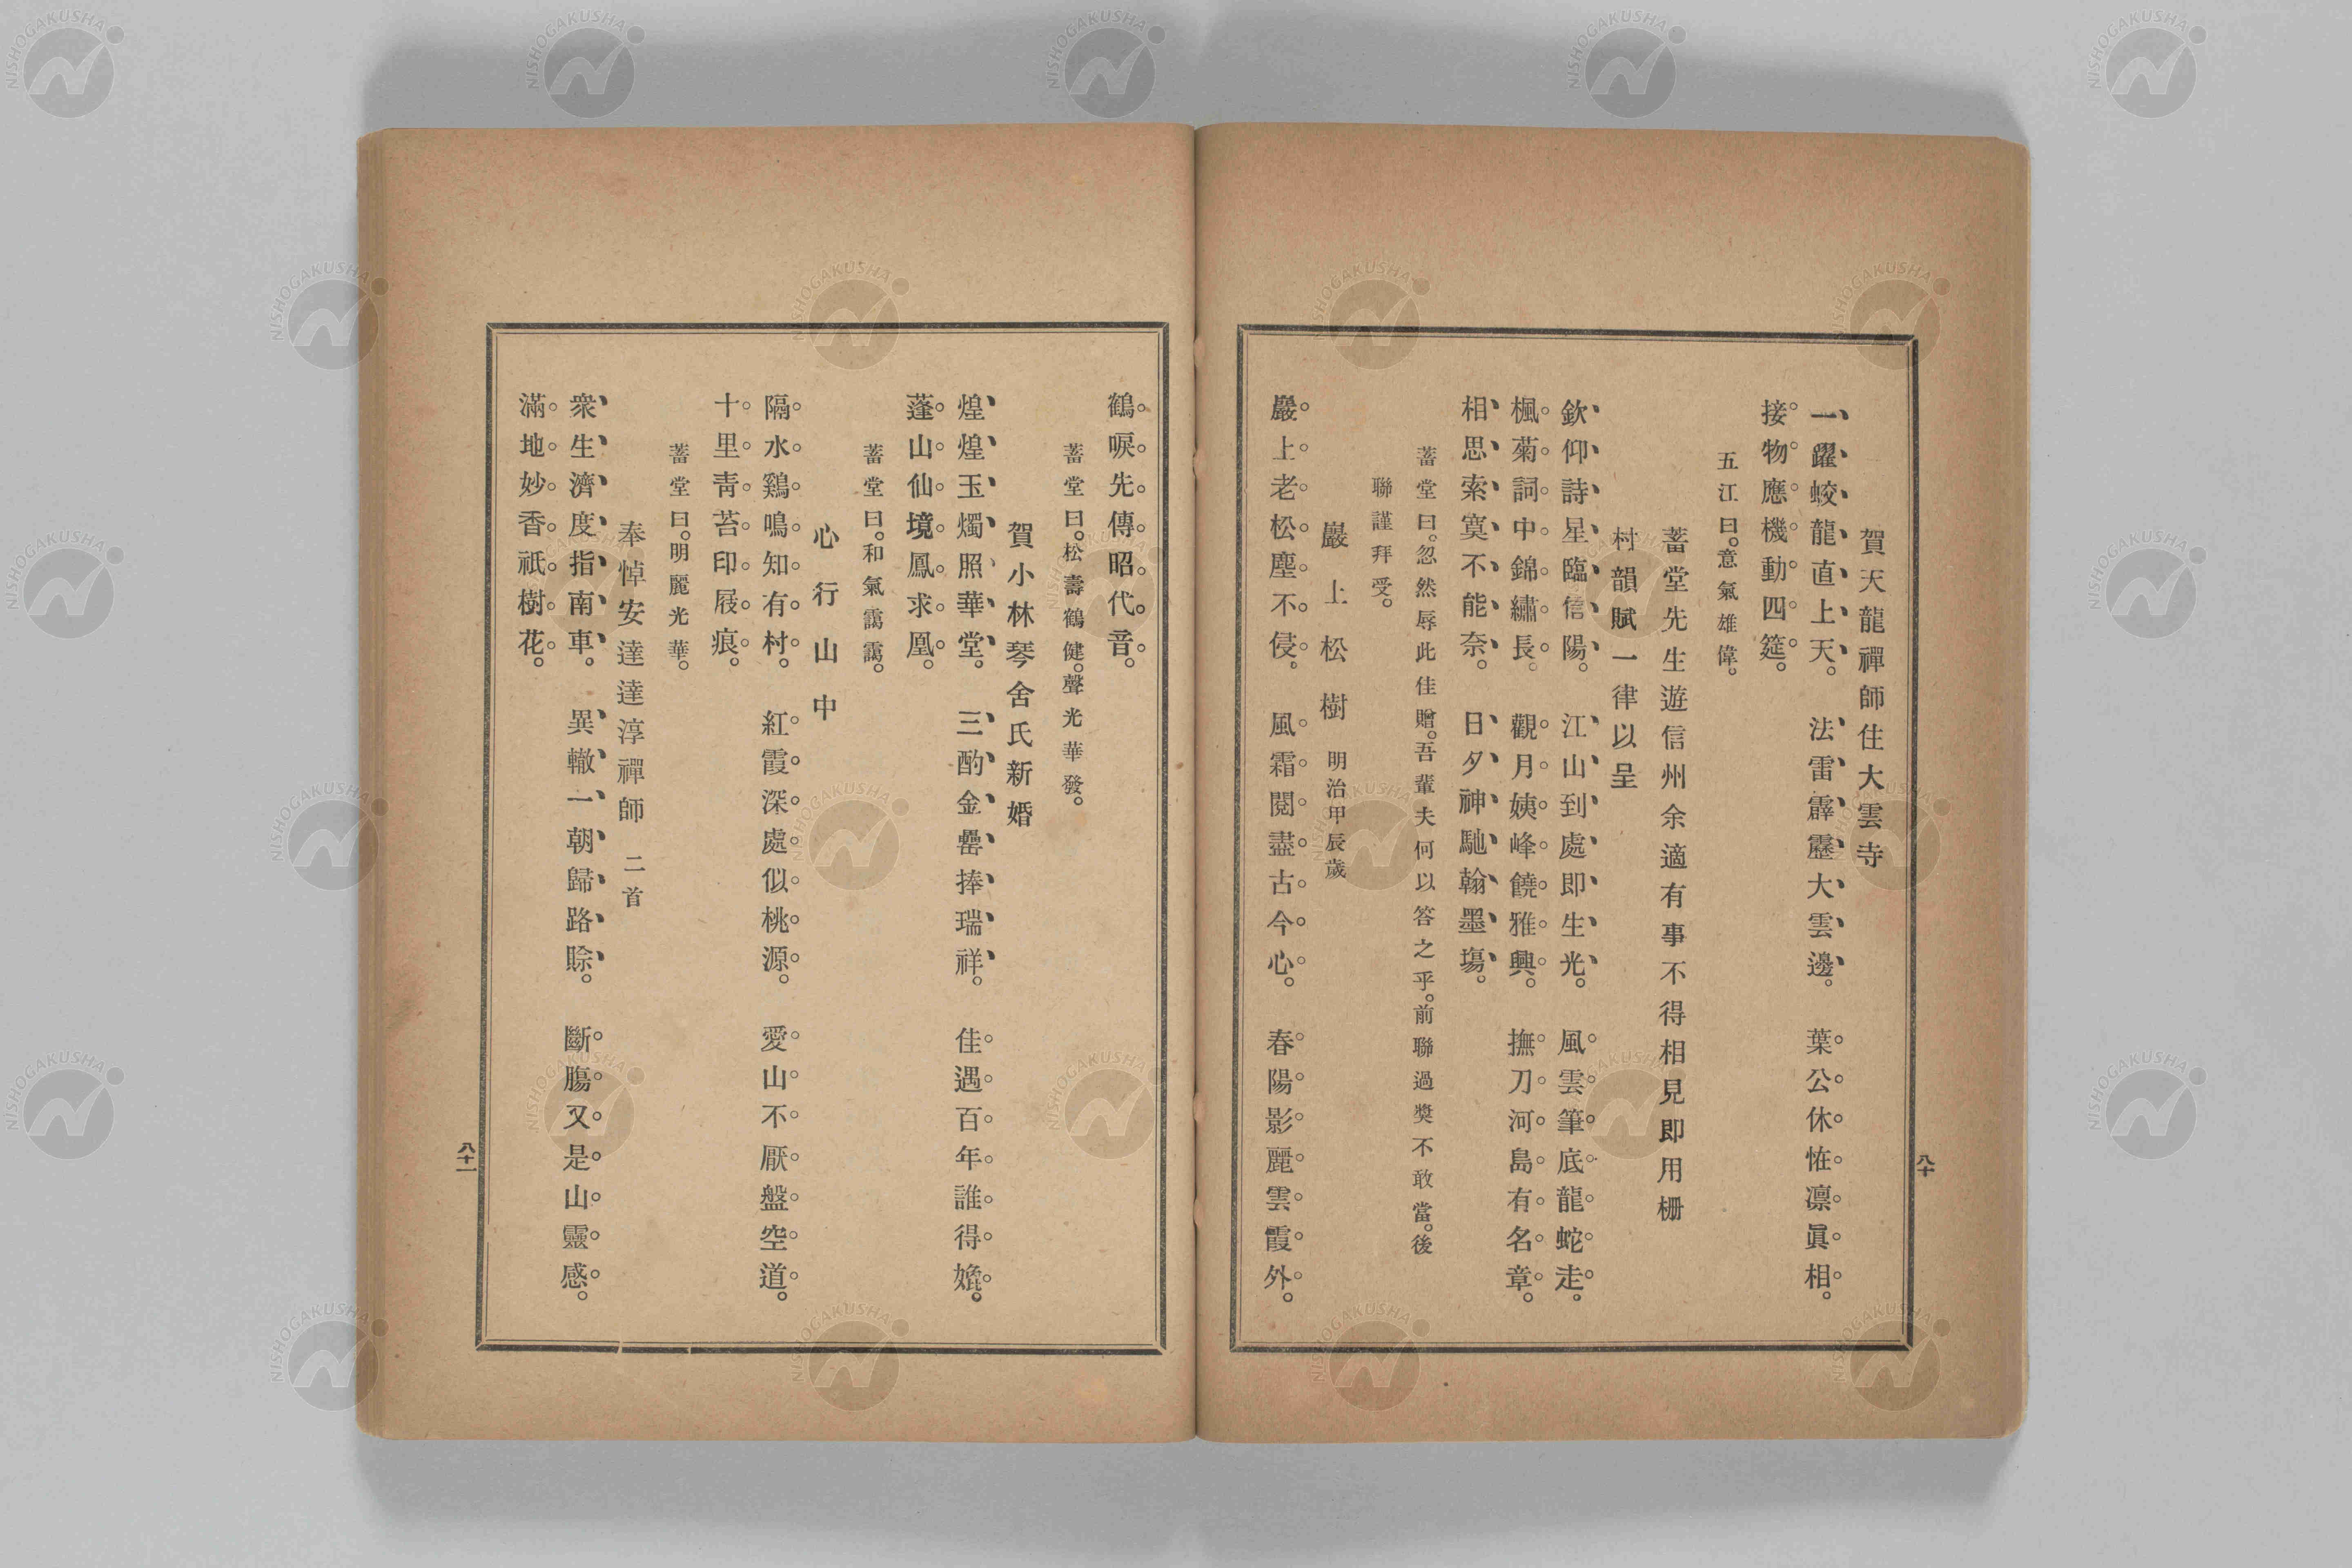 賀天龍禪師住大雲寺
一躍蛟龍直上天。　法雷霹靂大雲邊。　葉公休恠凛眞相。
接物應機動四筵。
五江曰。意氣雄偉。
蓄堂先生遊信州余適有事不得相見即用栅
村韻賦一律以呈
欽仰詩星臨信陽。　江山到處即生光。　風雲筆底龍蛇走。
楓菊詞中錦繡長。　觀月姨峰饒雅興。　撫刀河島有名章。
相思索寞不能奈。　日夕神馳翰墨塲。
蓄堂曰。忽然辱此佳贈。吾輩夫何以答之乎。前聯過奬不敢當。後
聯謹拜受。
巖上松樹　明治甲辰歲
巖上老松塵不侵。　風霜閱盡古今心。　春陽影麗雲霞外。
八十
鶴唳先傳昭代音。
蓄堂曰。松壽鶴健。聲光華發。
賀小林琴舍氏新婚
煌煌玉燭照華堂。　三酌金罍捧瑞祥。　佳遇百年誰得儷。
蓬山仙境鳳求凰。
蓄堂曰。和氣靄靄。
心行山中
隔水鷄鳴知有村。　紅霞深處似桃源。　愛山不厭盤空道。
十里靑苔印屐痕。
蓄堂曰。明麗光華。
奉悼安達達淳禪師　二首
衆生濟度指南車。　異轍一朝歸路賖。　斷膓又是山靈感。
滿地妙香祇樹花。
八十一
NISHOGAKUSHA